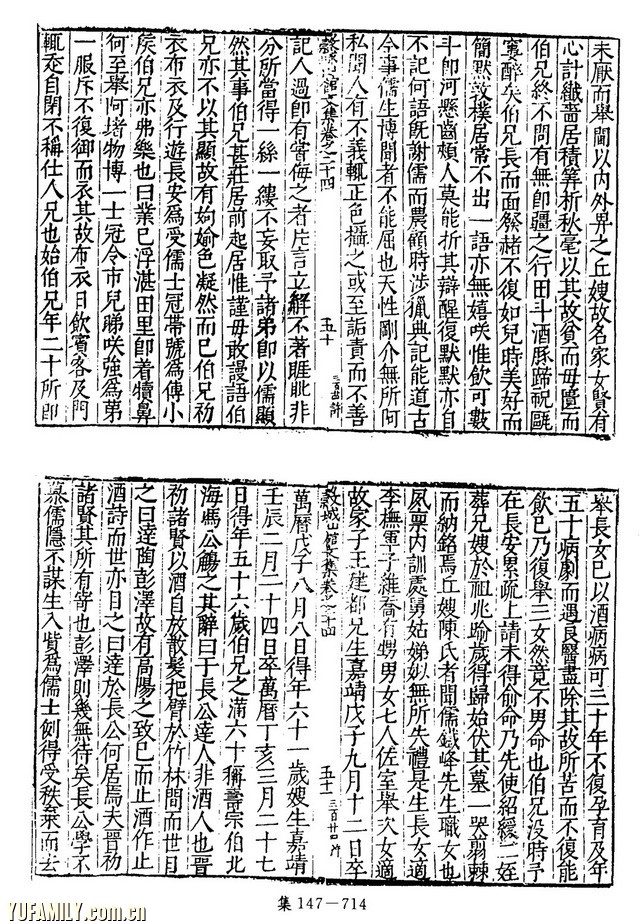 未厭而舉閫以内外畀之丘嫂故名家女賢有
心計纖嗇居積筭析秋毫以其故貧而毋匱而
伯兄終不問有無即疆之行田斗酒豚蹄祝甌
寠醉矣伯兄長而面發赭不復如兒時美好而
簡默敦樸居常不出一語亦無嬉咲惟飲可數
斗即河懸齒頰人莫能折其辯醒復默默亦自
不記何語既謝儒而農顧時涉獵典記能道古
今事儒生博聞者不能屈也天性剛介無所阿
私聞人有不義輒正色攝之或至詬責而不善
穀城山館文集卷之二十四 五十
記人過即有嘗侮之者片言立解不著睚眦非
分所當得一絲一縷不妄取予諸弟即以儒顯
然其事伯兄甚莊居前起居惟謹毋敢謾語伯
兄亦不以其顯故有姁婾色凝然而已伯兄初
衣布衣及行遊長安為受儒士冠帶號為傳小
矦伯兄亦弗樂也曰業已浮湛田里即着犢鼻
何至舉阿堵物博一士冠令市兒睇咲強為弟
一服斥不復御而衣其故布衣日飲賔客及門
輒走自閉不稱仕人兄也始伯兄年二十所即
舉長女已以酒病病可二十年不復孕育及年
五十病劇而遇良醫盡除其故所苦而不復能
飲已乃復舉二女然竟不男命也伯兄没時予
在長安累疏上請未得俞命乃先使紹緩二姪
葬兄嫂於祖兆踰歲得歸始伏其墓一哭翦棘
而納銘焉丘嫂陳氏者聞儒鐵峰先生職女也
夙稟内訓處舅姑娣姒無所失禮是生長女適
李橅軍子維喬有甥男女七人佐室舉次女適
故家子王建都兄生嘉靖戊子九月十二日卒
穀城山館文集卷之二十四 五十一 三百廿四
萬曆戊子八月八日得年六十一歲嫂生嘉靖
壬辰二月二十四日卒萬曆丁亥三月二十七
日得年五十六歲伯兄之滿六十稱壽宗伯北
海馮公觴之其辭曰于長公達人非酒人也晋
初諸賢以酒自放散髮把臂於竹林間而世目
之曰達陶彭澤故有高陽之致已而止酒作止
酒詩而世亦目之曰達於長公何居焉夫晋初
諸賢其所有啇也彭澤則幾無待矣長公學不
慕儒隱不謀生入貲為儒士劍得受秩棄而去
集 147－714
YUFAMILY.com.cn